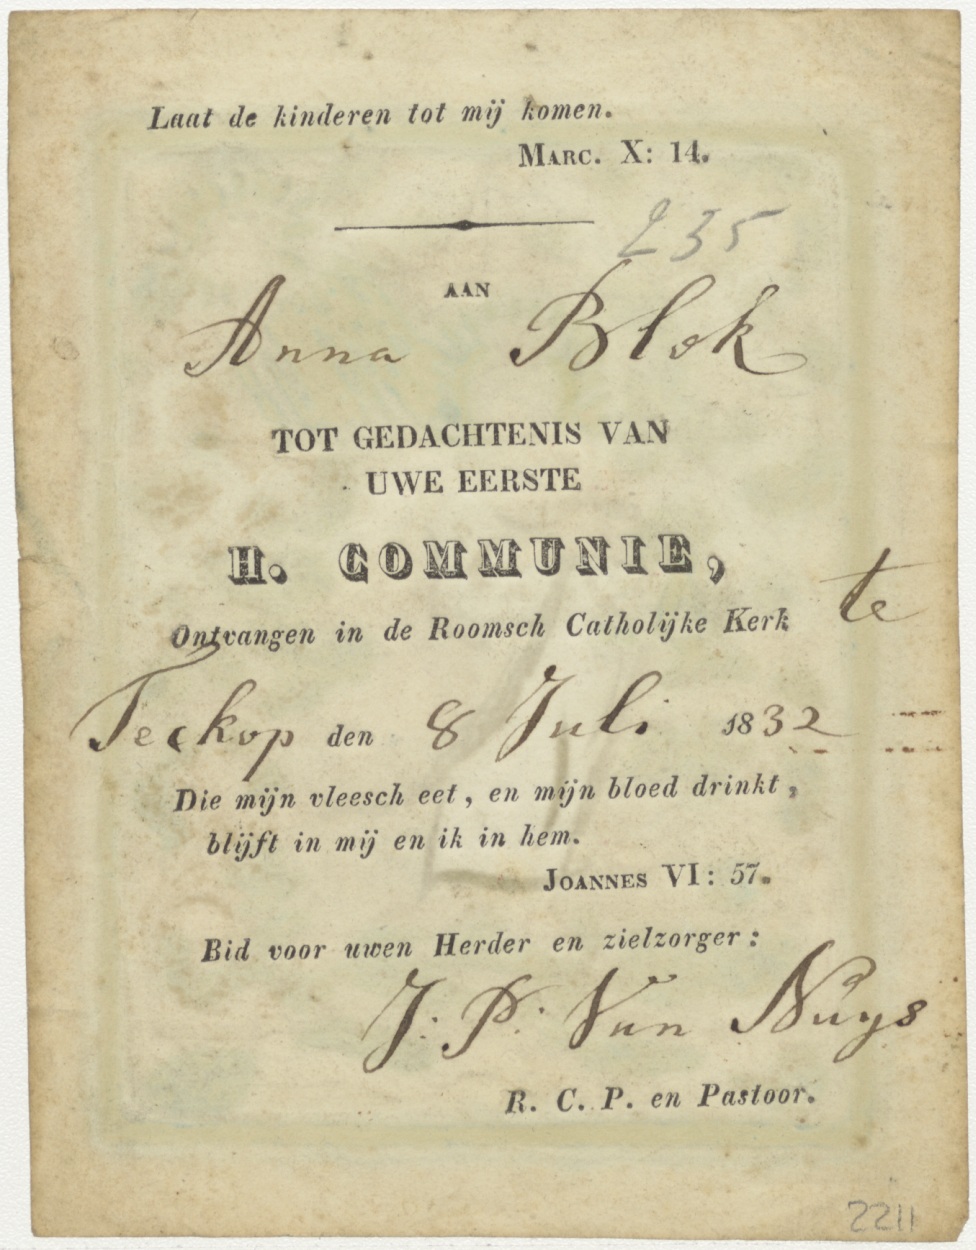 Laat de kinderen tot mij komen.
MARC. X: 14.
235
AAN
Anna Blok
TOT GEDACHTENIS VAN
UWE EERSTE
H. COMMUNIE,
Ontvangen in de Roomsch Catholijke Kerk te
Teckop den 8 Juli 1832
Die mijn vleesch eet, en mijn bloed drinkt,
blijft in mij en ik in hem.
JOANNES VI: 57.
Bid voor uwen Herder en zielzorger:
J: P: Van Nuys
R. C. P. en Pastoor.
2211